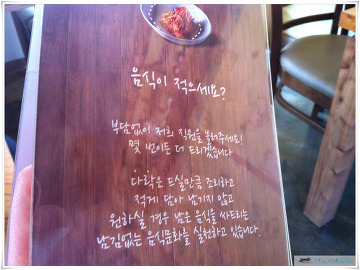 음식이 적으세요?
부담없이 저희 직원을 불러주세요!
몇 번이든 더 드리겠습니다
다락은 드실만큼 조리하고
적게 담아 남기지 않고
원하실 경우 남은 음식을 싸드리는
남김없는 음식문화를 실천하고 있습니다.